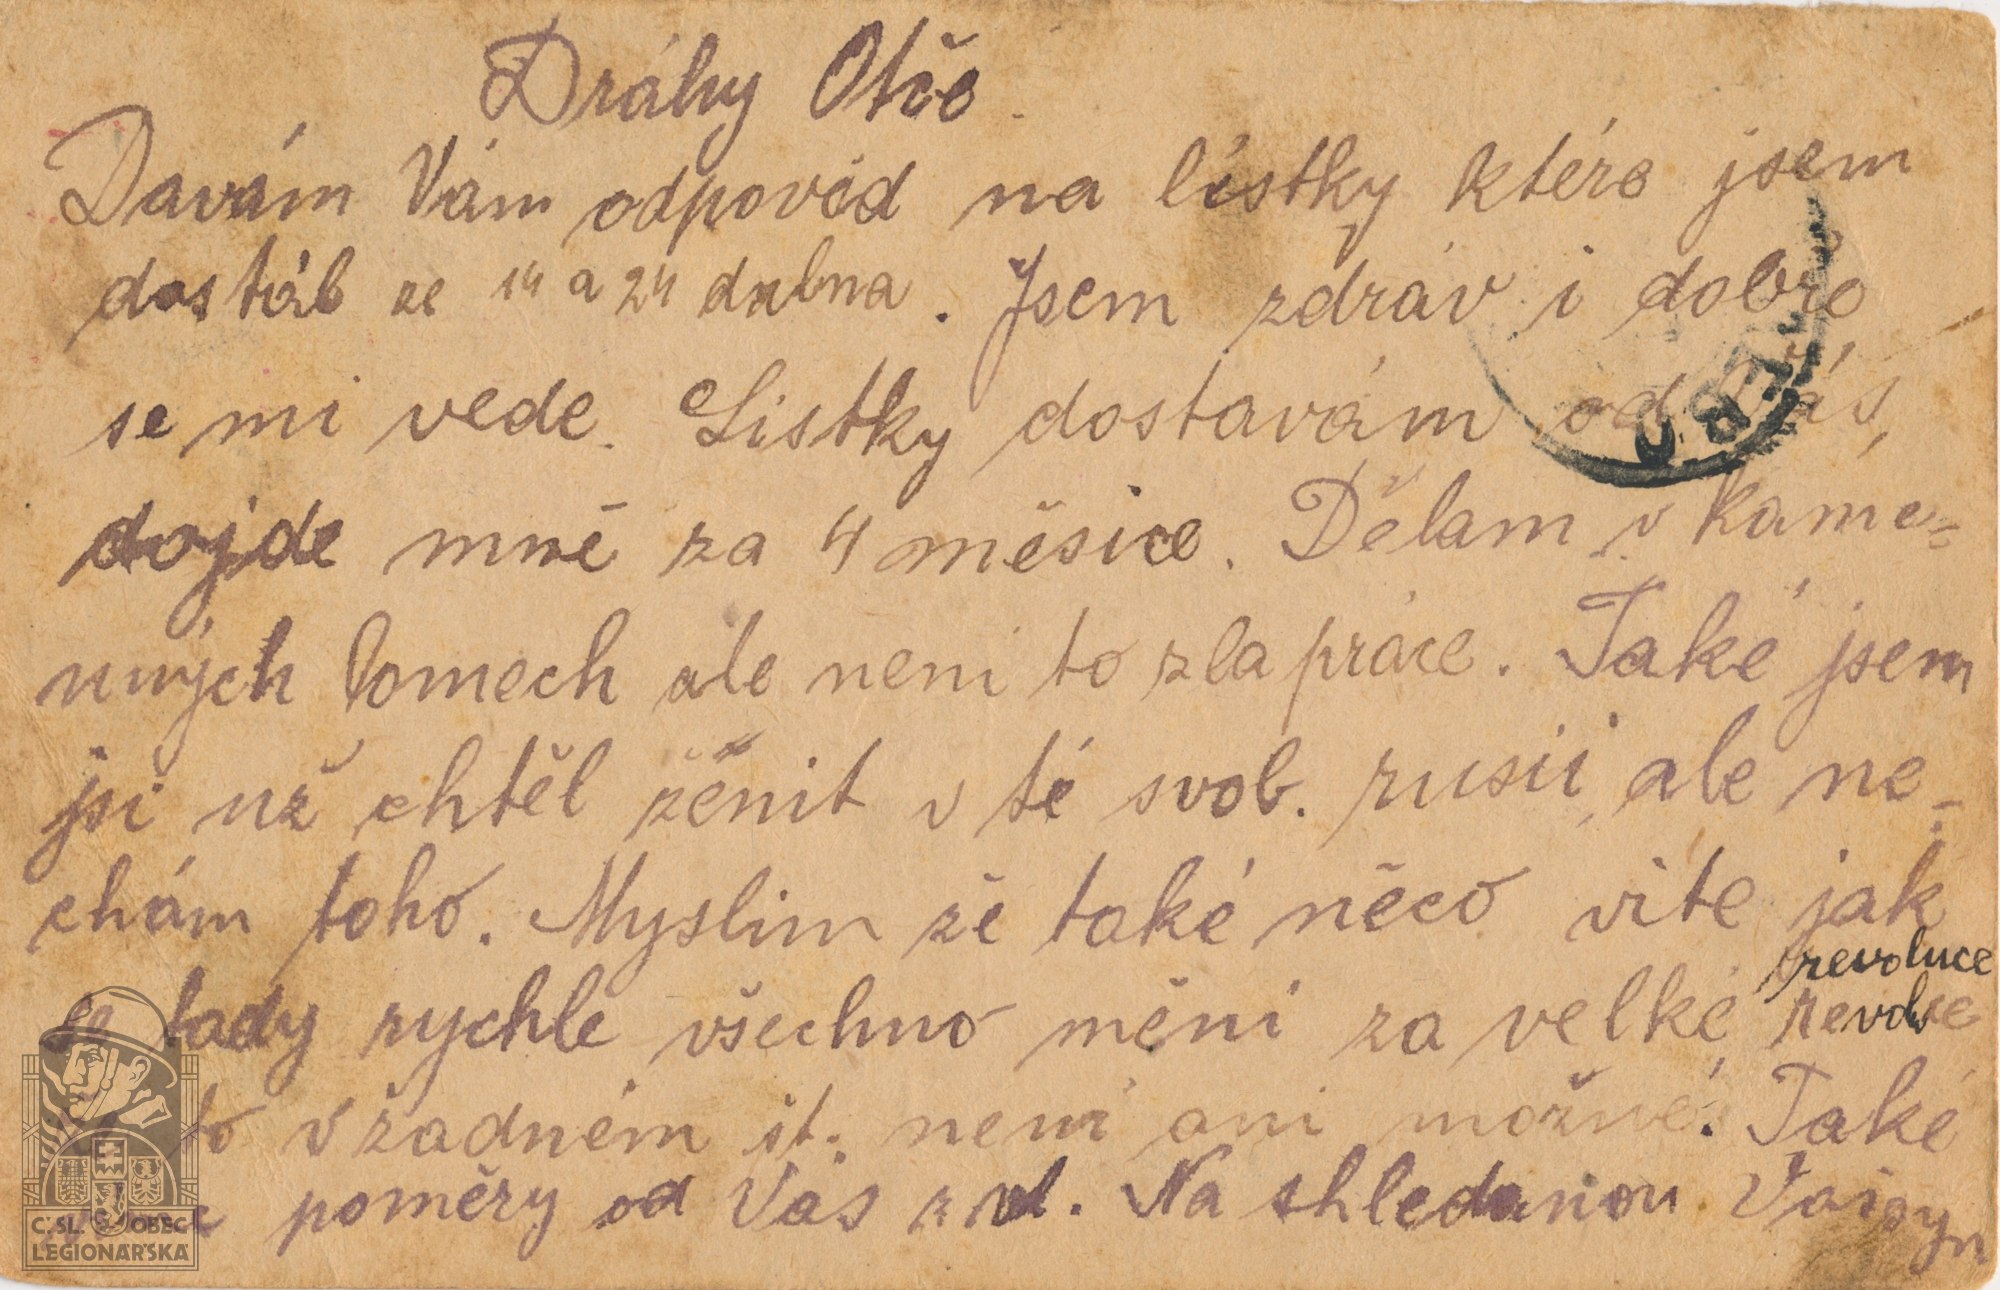 Dráhy Otče
Davám Vám odpověd na listky které jsem
dostál ze 14 a 24 dubna. Jsem zdráv i dobře
se mi vede. Listky dostavám od Vás,
dojde mně za 4 měsice. Dělam v kame=
nných lomech ale neni to zla práce. Také jsem
jsi už chtěl žěnit v té svob. rusii, ale ne-
chám toho. Myslim že také něco vite jak
revoluce
se tady rychle všechno měni za velké
to v žadném st. neni ani možné. Také
poměry od Vás Na shledanou Váš syn
ČSL. OBEC
LEGIONÁŘSKÁ